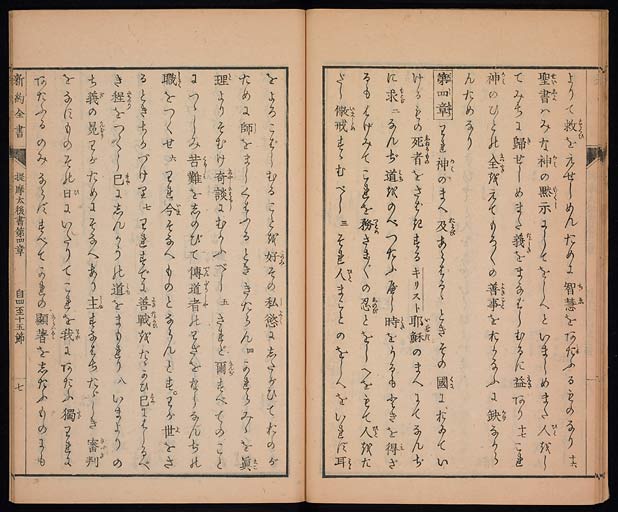 よりて救をえせしめんために智慧をあたふるものなり 十六
聖書ハみな神の黙示にしてをしへといましめまた人
てみちに歸せしめまた義をまなばしむるに益あり 十七 これ
神のひとの全をえてもろ〱の善事をおこなふに缺なから
んためなり
第四章 われ神のまへ及あらはるゝときその國においてい
けるもの死者をさばきたまふキリスト耶穌のまへにてなんぢ
に求 二 なんぢ道をのべつたふべし時をうるもときを得ざ
るもはげみてこれを務さま〲の忍とをしへをもて人をた
だし儆戒すゝむべし 三 そは人まことのをしへをいれず耳
をよろこばしむることを好その私慾にしたがひておのが
ために師をましくはふるときゝたらん 四 かれらみゝを眞
理よりそむけ奇談にむかふべし 五 されど爾すべてのこと
につゝしみ苦難をしのびて傳道者のわざをなしなんぢの
職をつくせ 六 われ今そなへものとならんとす。わが世をさ
るときちかづけり 七 われすでに善戰をたゝかひ已にはしるべ
き程をつくし已にしんかうの道をまもれり 八 いまよりの
ち義の冕わがためにそなへあり主すなはちたゞしき審判
をなすものその日にいたりてこれを我にあたふ獨われに
あたふるのみならずすべてかれの顯著をしたふものにも
新約全書 提摩太後書第四章 自四至十五節 七